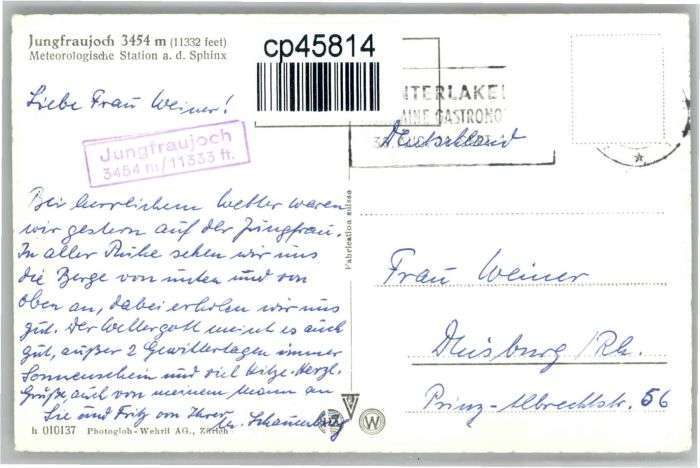 Jungfraujoch 3454 m (11332 feet)
Meteorologische Station a. d. Sphinx
cp45814
Liebe Frau Weiner!
Jungfraujoch
3454 m/11333 ft.
NTERLAKE
GASTRONO
Deutschland
Bei herrlichem Wetter waren
wir gestern auf der Jungfrau.
In aller Ruhe sehen wir uns
die Berge von unten und von
oben an, dabei erholen wir uns
gut. Der Wettergott meint es auch
gut, außer 2 Gewittertagen immer
Sonnenschein und viel Hitze. Herzl.
Grüße, auch von meinem Mann an
Sie und Fritz von Ihrer
Schauenburg
Fabrication suisse
Frau Weiner
Duisburg/Rh.
Prinz-Albrechtstr. 56
h 010137 Photogloh-Wehrli AG., Zürich
W